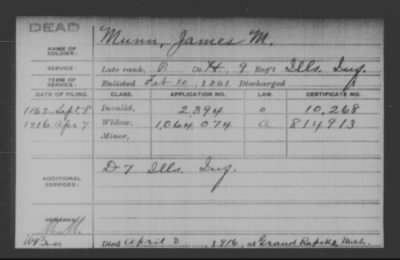 DEAD
NAME OF SOLDIER: Munn, James M.
SERVICE: Late rank, Co. H, 9 Reg't Ills. Inf.
TERM OF SERVICE: Enlisted 1861, Discharged
DATE OF FILING. CLASS. APPLICATION NO. LAW. CERTIFICATE NO.
1862 Sept. 8 Invalid. 2,394 10,268
1916 Apr 7 Widow. 1,064,074 a 814913
Minor.
ADDITIONAL SERVICES: D 7 Ills. Inf.
REMARKS:
Died April 2, 1916, at Grand Rapids, Mich.